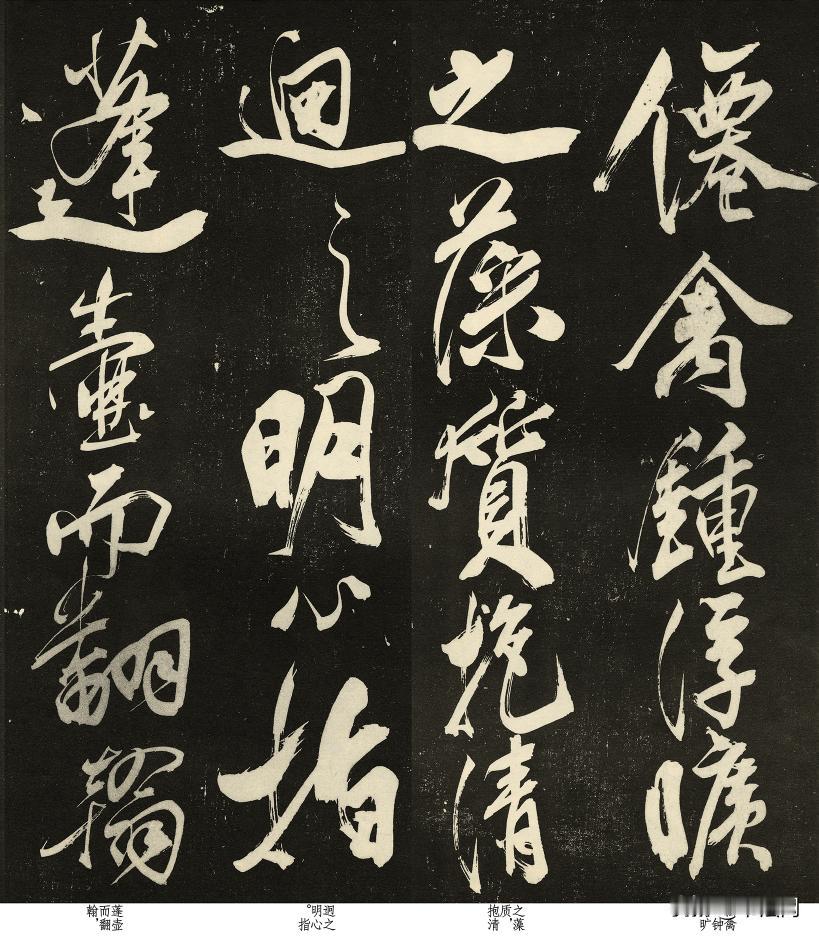 僊禽鍾浮曠
之藻質抱清
迥之明心指
蓬壺而翻翰
禽钟旷
之藻质，抱清
迥之明心。指
蓬壶而翻翰，